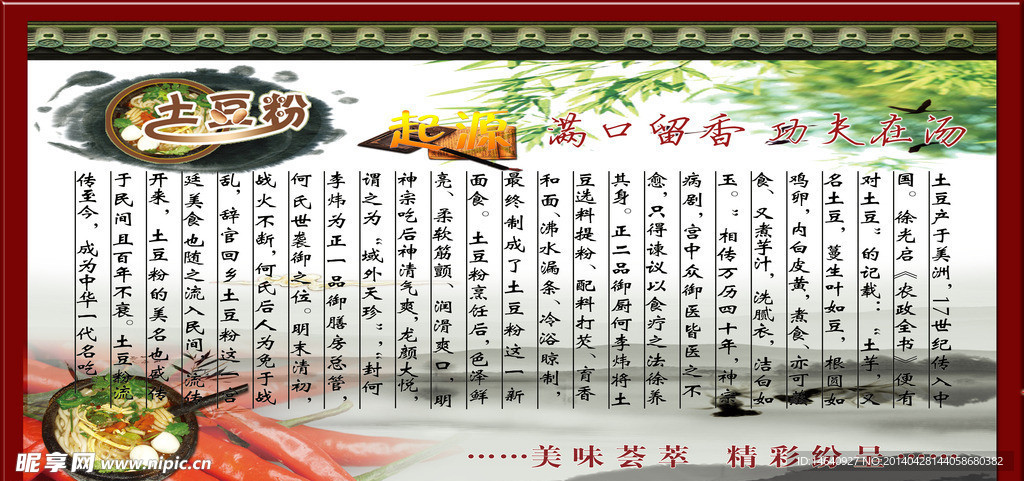 土豆粉
起源
满口留香 功夫在汤
土豆产于美洲，17世纪传入中
国。徐光启《农政全书》便有
对土豆”的记载：“土芋，又
名土豆，蔓生叶如豆，根圆如
鸡卵，内白皮黄，煮食、亦可蒸
食、又煮芋汁，洗腻衣，洁白如
玉。”相传万历四十年，神宗
病剧，宫中众御医皆医之不
愈，只得谏议以食疗之法徐养
其身。正二品御厨何李炜将土
豆选料提粉、配料打芡、育香
和面、沸水漏条、冷浴晾制，
最终制成了土豆粉这一新
面食。土豆粉烹饪后，色泽鲜
亮、柔软筋颤、润滑爽口，明
神宗吃后神清气爽，龙颜大悦，
谓之为“域外天珍”，封何
李炜为正一品御膳房总管，
何氏世袭御之位。明末清初，
战火不断，何氏后人为免于战
乱，辞官回乡土豆粉这一宫
廷美食也随之流入民间，流传
开来，土豆粉的美名也盛传
于民间且百年不衰。土豆粉流
传至今，成为中华一代名吃
……美味荟萃 精彩纷呈……
昵享网 www.nipic.cn
ID:14640927 NO:20140428144058680382